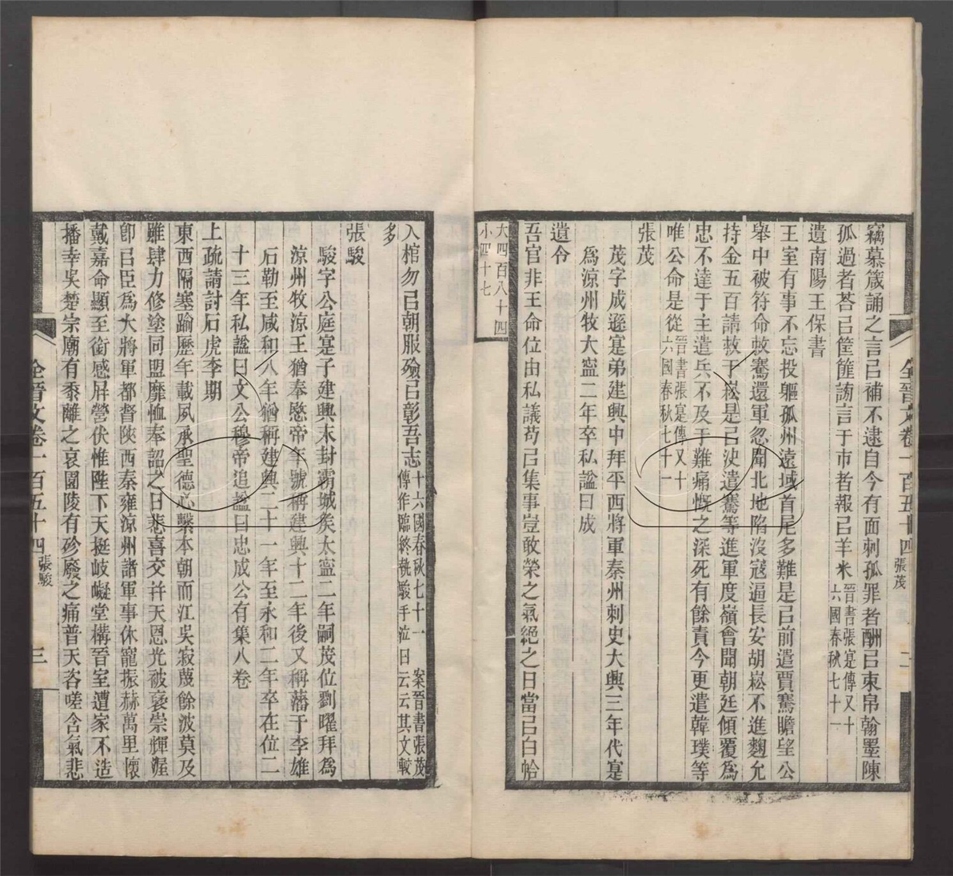 竊慕箴誦之言㠯補不逮自今有面刺孤罪者酬㠯束帛翰墨陳
孤過者荅㠯筐篚謗言于市者報㠯羊米晉書張寔傳又十六國春秋七十一
遺南陽王保書
王室有事不忘投軀孤州遠域首尾多難是㠯前遣賈騫瞻望公
舉中被符命敕騫還軍忽聞北地陷沒寇逼長安胡崧不進麴允
持金五百請救于崧是㠯決遣騫等進軍度嶺會聞朝廷傾覆爲
忠不達于主遣兵不及于難痛慨之深死有餘責今更遣韓璞等
唯公命是從晉書張寔傳又十六國春秋七十一
張茂
茂字成遜寔弟建興中拜平西將軍秦州刺史大興三年代寔
爲涼州牧大寧二年卒私諡曰成
遺令
吾官非王命位由私議苟㠯集事豈敢榮之氣絕之日當㠯白帢
大四百八十四
小四十七
全晉文卷一百五十四 張茂 二
入棺勿㠯朝服殮㠯彰吾志十六國春秋七十一 案晉書張茂傳作臨終執駿手泣曰云云其文較
多
張駿
駿字公庭寔子建興末封霸城矦太寧二年嗣茂位劉曜拜爲
涼州牧涼王猶奉愍帝年號稱建興十二年後又稱藩于李雄
石勒至咸和八年猶稱建興二十一年至永和二年卒在位二
十三年私諡曰文公穆帝追諡曰忠成公有集八卷
上疏請討石虎李期
東西隔塞踰歷年載夙承聖德心繫本朝而江吳寂蔑餘波莫及
雖肆力修塗同盟靡恤奉詔之日悲喜交幷天恩光被襃崇輝渥
卽㠯臣爲大將軍都督陜西秦雍涼州諸軍事休寵振赫萬里懷
戴嘉命顯至銜感屛營伏惟陛下天挺岐嶷堂構晉室遭家不造
播幸吳楚宗廟有黍離之哀園陵有殄廢之痛普天咨嗟含氣悲
全晉文卷一百五十四 張駿 三